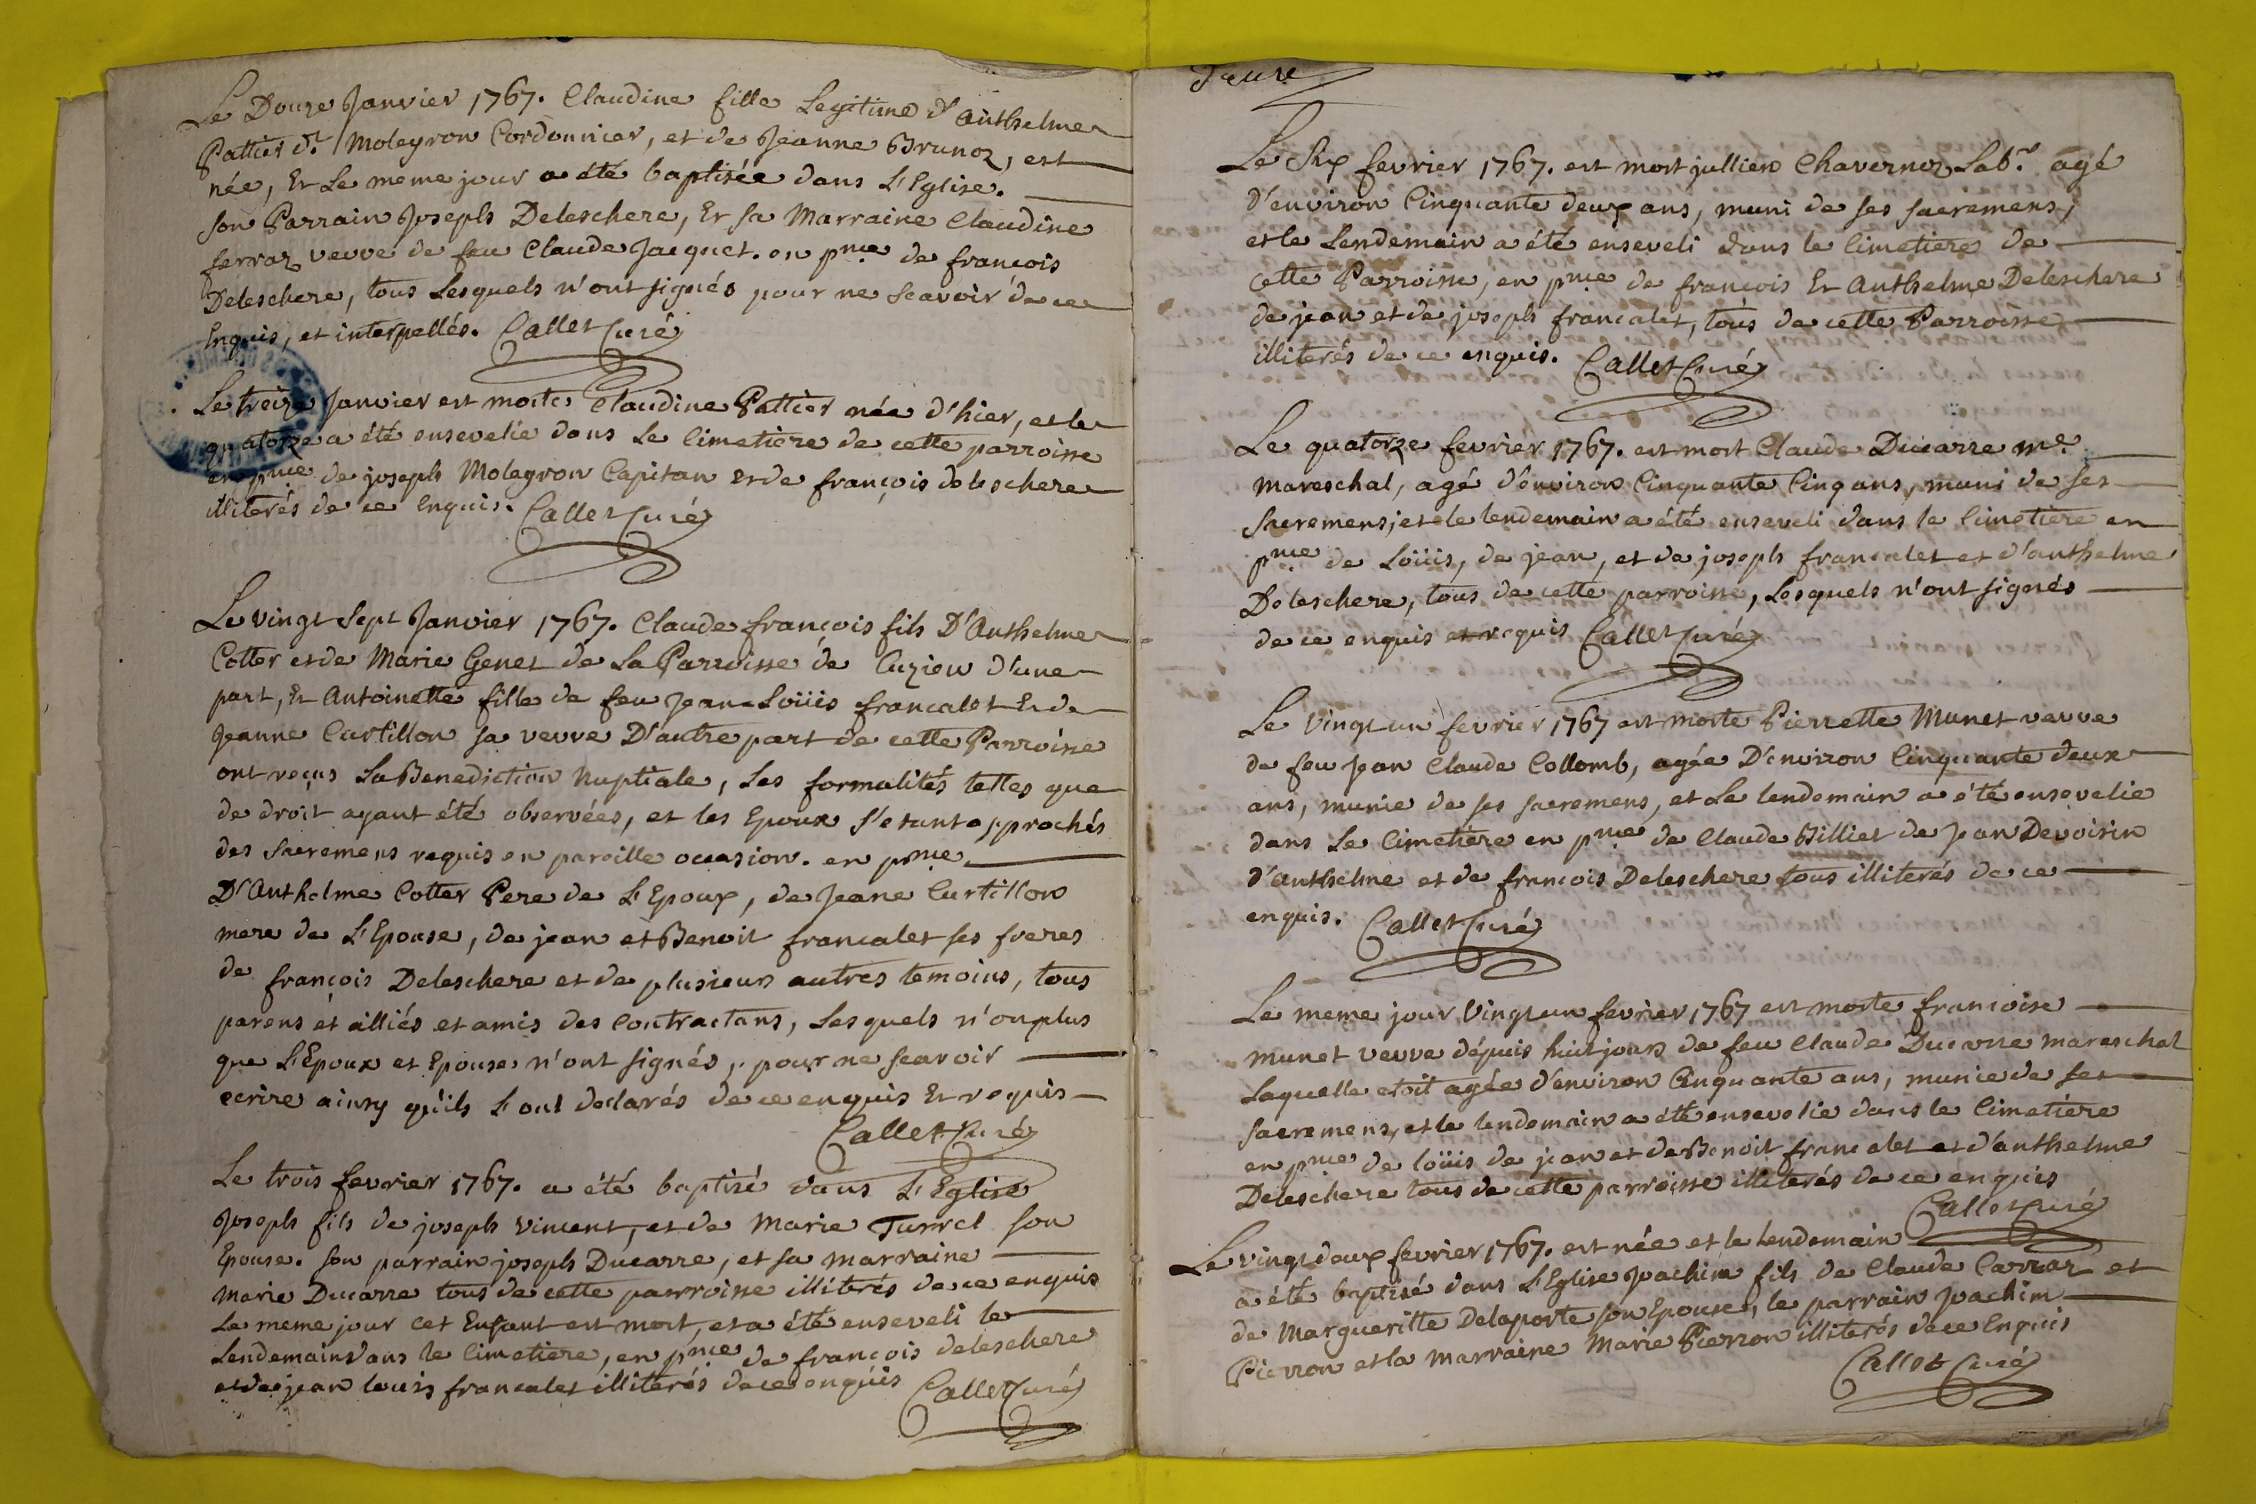 Le Douze Janvier 1767. Claudine fille Legitime d'Anthelme
Pattier dt. Moleyron Cordonnier, et de Jeanne Brunoz, est
née, Et Le meme jour a été baptisée dans L'Eglise.
son Parrain Joseph Deleschere, Et sa Marraine Claudine
ferraz veuve de feu Claude Jacquet. en pnce de francois
Deleschere, tous Lesquels n'ont signés pour ne scavoir de ce
Enquis, et interpellés. Callet Curé
Le treize Janvier est morte Claudine Pattier née d'hier, et le
quatorze a été ensevelie dans Le Cimetière de cette parroisse
en pnce de joseph Moleyron Capitan et de françois deleschere
illiterés de ce Enquis. Callet Curé
Le vingt Sept Janvier 1767. Claude françois fils D'Anthelme
Cotter et de Marie Genet de La Parroisse de Cuzieu d'une
part, Et Antoinette fille de feu Jean Loüis francalet Et de
Jeanne Curtillon sa veuve D'autre part de cette Parroisse
ont reçus La Benediction Nuptiale, Les formalités telles que
de droit ayant été observées, et les Epoux s'etant approchés
des sacremens requis en pareille occasion. en pnce
D'Anthelme Cotter Pere de L'Epoux, de Jeane Curtillon
mere de L'Epouse, de jean et Benoit francalet ses freres
de françois Deleschere et de plusieurs autres temoins, tous
parens et alliés et amis des Contractans, Lesquels n'on plus
que L'Epoux et Epouse n'ont signés, pour ne scavoir
ecrire ainsy qu'ils L'ont declarés de ce enquis Et requis
Callet Curé
Le trois fevrier 1767. a été baptisé dans L'Eglise
Joseph fils de joseph Vincent, et de Marie Turrel son
Epouse. son parrain joseph Ducarre, et sa marraine
Marie Ducarre tous de cette parroisse illiterés de ce enquis
Le meme jour cet Enfant est mort, et a été enseveli le
Lendemain dans le Cimetiere, en pnce de françois deleschere
et de jean louis francalet illiterés de ce enquis Callet Curé
Le Six fevrier 1767. est mort jullien Chavernoz Labr. agé
d'environ Cinquante deux ans, muni de ses sacremens,
et le Lendemain a été enseveli dans le Cimetiere de
Cette Parroisse, en pnce de francois Et Anthelme Deleschere
de jean et de joseph francalet, tous de cette Parroisse
illiterés de ce enquis. Callet Curé
Le quatorze fevrier 1767. est mort Claude Ducarre me.
Mareschal, agé d'environ Cinquante Cinq ans, muni de ses
sacremens, et le lendemain a été enseveli dans le Cimetière en
pnce de Loüis, de jean, et de joseph francalet et d'anthelme
Deleschere, tous de cette parroisse, Lesquels n'ont signés
de ce enquis et requis Callet Curé
Le vingt un fevrier 1767 est morte Pierrette Munet veuve
de feu Jean Claude Collomb, agée D'environ Cinquante deux
ans, munie de ses sacremens, et Le lendemain a été ensevelie
dans Le Cimetière en pnce de Claude Billiet de Jean Devoisin
d'Anthelme et de francois Deleschere tous illiterés de ce
enquis. Callet Curé
Le meme jour Vingt un fevrier 1767 est morte francoise
Munet veuve dépuis huit jours de feu Claude Ducarre mareschal
Laquelle etoit agée d'environ Cinquante ans, munie de ses
sacremens, et le lendemain a été ensevelie dans le Cimetière
en pnce de loüis de jean et de Benoit francalet et d'anthelme
Deleschere tous de cette parroisse illiterés de ce enquis
Callet Curé
Le vingt deux fevrier 1767. est née et le lendemain
a été baptisé dans L'Eglise Joachim fils de Claude Carraz et
de Margueritte Delaporte son Epouse, le parrain Joachim
Pierron et la marraine Marie Pierron illiterés de ce Enquis
Callet Curé